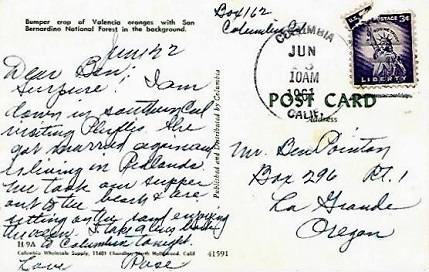 Bumper crop of Valencia oranges with San
Bernardino National Forest in the background.
June 22
Dear Ben;
Surprise! I am
down in southern Cal
visiting Phyllis. She
got married again and
is living in Redlands
We took our supper
out to the beach & are
sitting on the sand enjoying
the ocean. I take a bus back
to Columbia tonight.
Love Rose
H9A
Columbia Wholesale Supply, 11401 Chandler, North Hollywood, Calif. 41591
Published and Distributed by Columbia
Box 162
Columbia Cal
COLUMBIA
JUN
10AM
1961
CALIF.
U.S. POSTAGE 3¢
LIBERTY
POST CARD
Address
Mr. Ben Pointon
Box 296 Rt. 1
La Grande
Oregon